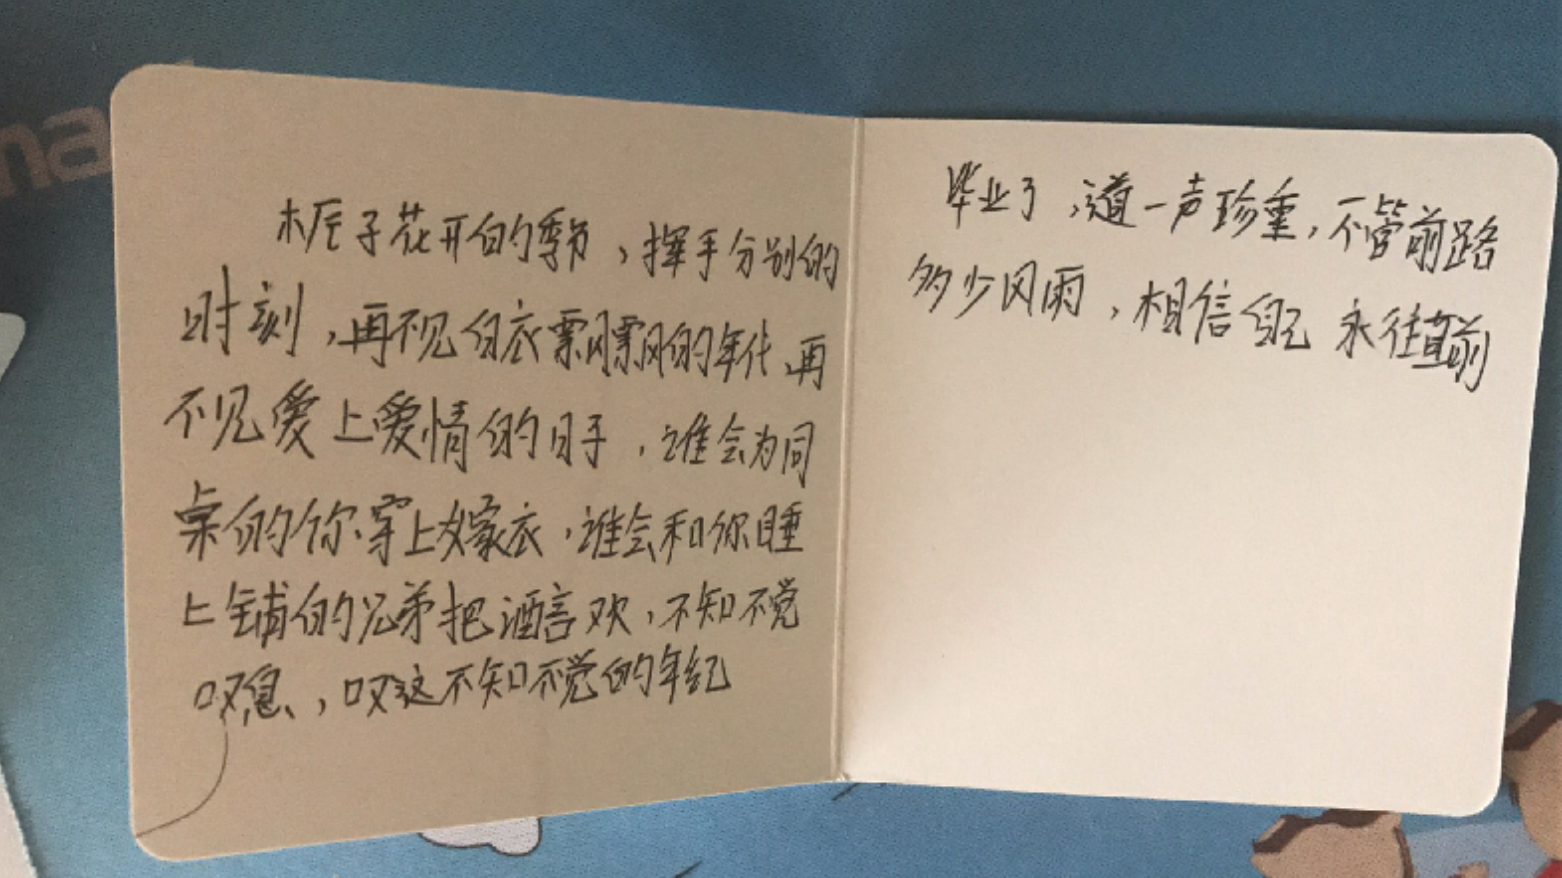 na
栀子花开的季节，挥手分别的
时刻，再不见白衣飘飘的年代，再
不见爱上爱情的日子，谁会为同
桌的你穿上嫁衣，谁会和你睡
上铺的兄弟把酒言欢，不知不觉
叹息，叹这不知不觉的年纪
毕业了，道一声珍重，不管前路
多少风雨，相信自己 永往直前